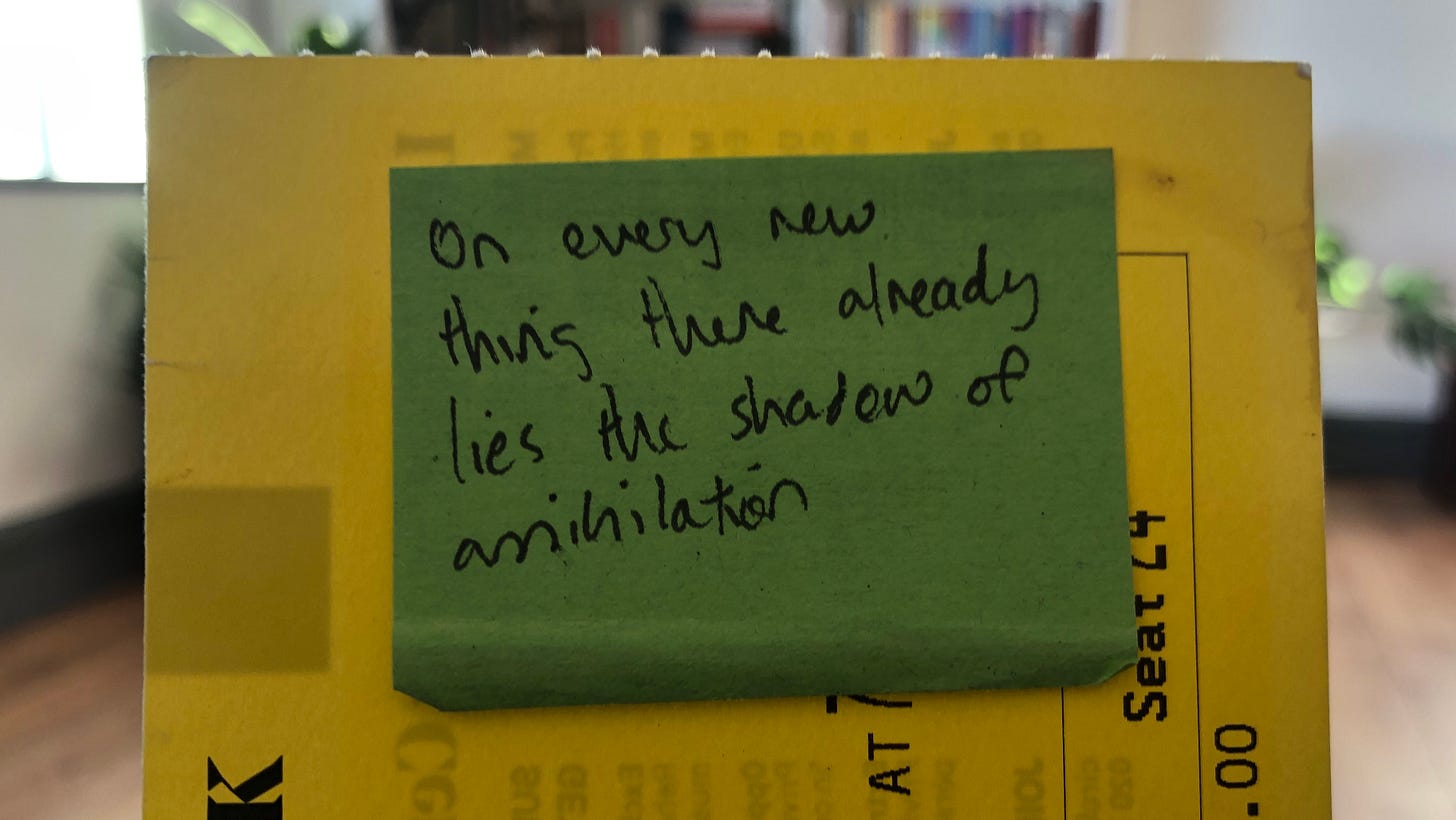 On every new
thing there already
lies the shadow of
annihilation
Seat 24
AT 7
.00
K